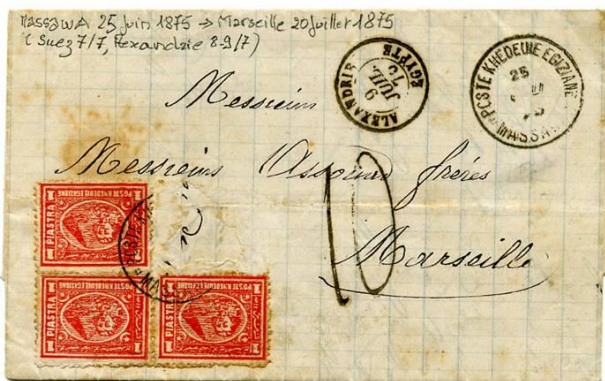 Massawa 25 juin 1875 → Marseille 20 juillet 1875
(Suez 7/7, Alexandrie 8-9/7)
ALEXANDRIE
9
JUIL
75
EGYPTE
POSTE KHEDEUIE EGIZIANE
25
MASSA
Messieurs
Messieurs Assouan frères
10
Marseille
POSTE KHEDEUIE EGIZIANE
1 PIASTRA 1
POSTE KHEDEUIE EGIZIANE
1 PIASTRA 1
POSTE KHEDEUIE EGIZIANE
1 PIASTRA 1